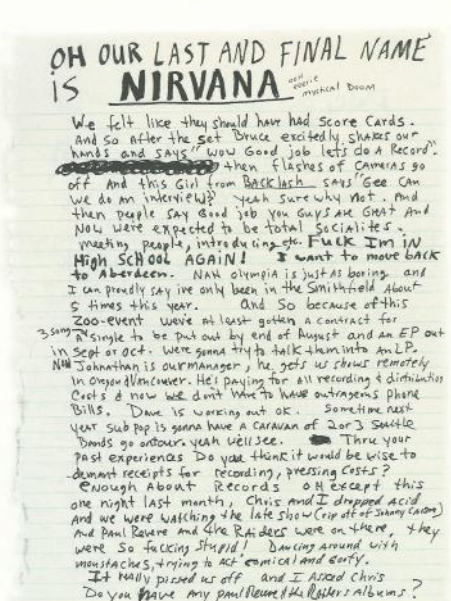 OH OUR LAST AND FINAL NAME
IS NIRVANA ooh eerie mystical Doom
We felt like they should have had score cards.
And so after the set Bruce excitedly shakes our
hands and says "wow Good job lets do A Record".
then flashes of cameras go
off And this Girl from BACKlash says "Gee Can
we do an interview"? yeah sure why not. And
then people say Good job you Guys are Great And
Now were expected to be total socialites.
meeting people, introducing etc. Fuck I'm IN
High SCHOOL AGAIN! I want to move back
to Aberdeen. NAH olympia is just as boring and
I can proudly say ive only been in the Smithfield About
5 times this year. And so because of this
Zoo-event weve at least gotten a contract for
3 song A single to be put out by end of August and an EP out
in sept or oct. were gonna try to talk them into an LP.
Now Johnathan is our manager, he gets us shows remotely
in oregon & Vancouver. He's paying for all recording & distribution
Costs & now we don't have to have outrageous phone
Bills. Dave is working out ok. Sometime next
year sub pop is gonna have a caravan of 2 or 3 seattle
Bands go on tour. yeah we'll see. Thru your
past experiences Do you think it would be wise to
demand receipts for recording, pressing Costs?
enough About Records OH except this
one night last month, Chris and I dropped acid
And we were watching the late show (rip off of Johnny Carson)
And Paul Revere and the Raiders were on there, they
were so fucking stupid! Dancing around with
moustaches, trying to act comical and Goofy.
It really pissed us off and I Asked Chris
Do you have Any paul Revere & the Raiders Albums?